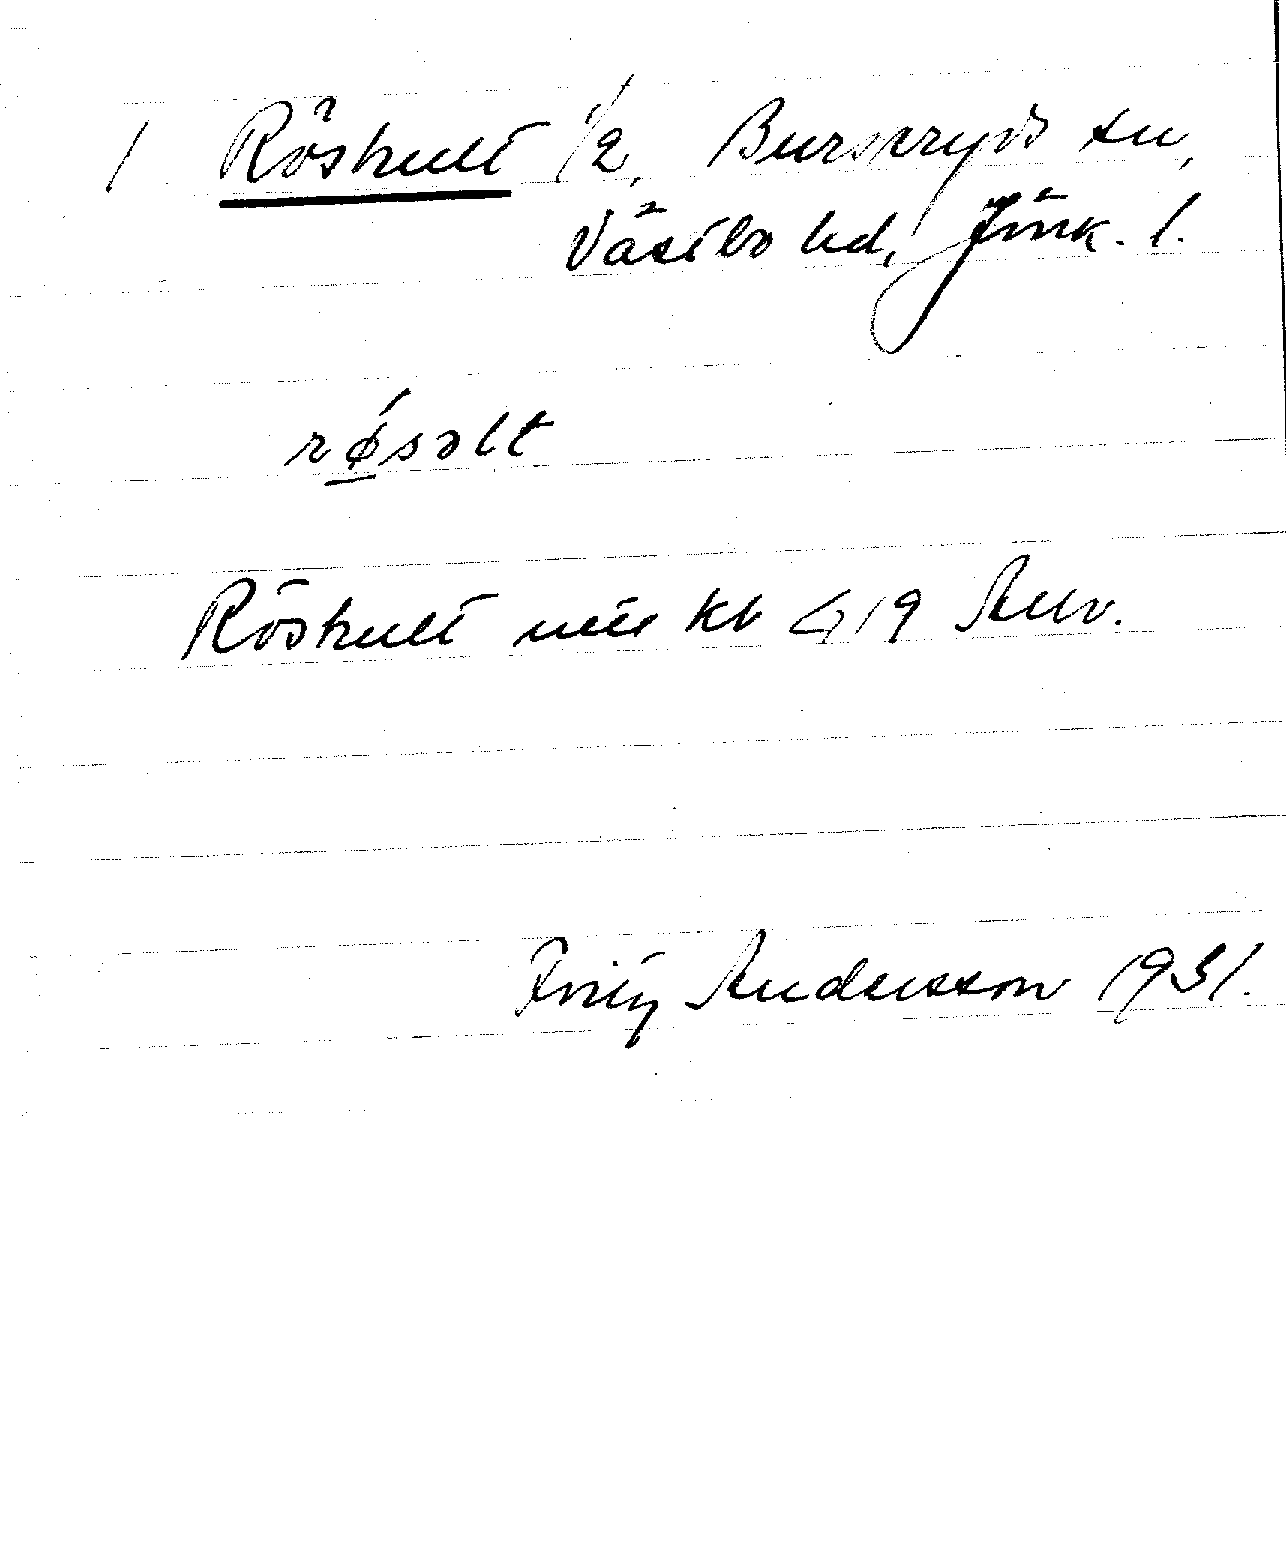 1 Röshult 1/2, Burseryds sn,
Västbo hd, Jönk. l.
rǿsəlt
Röshult mtl kb 419 Anv.
Fritz Andersson 1931.